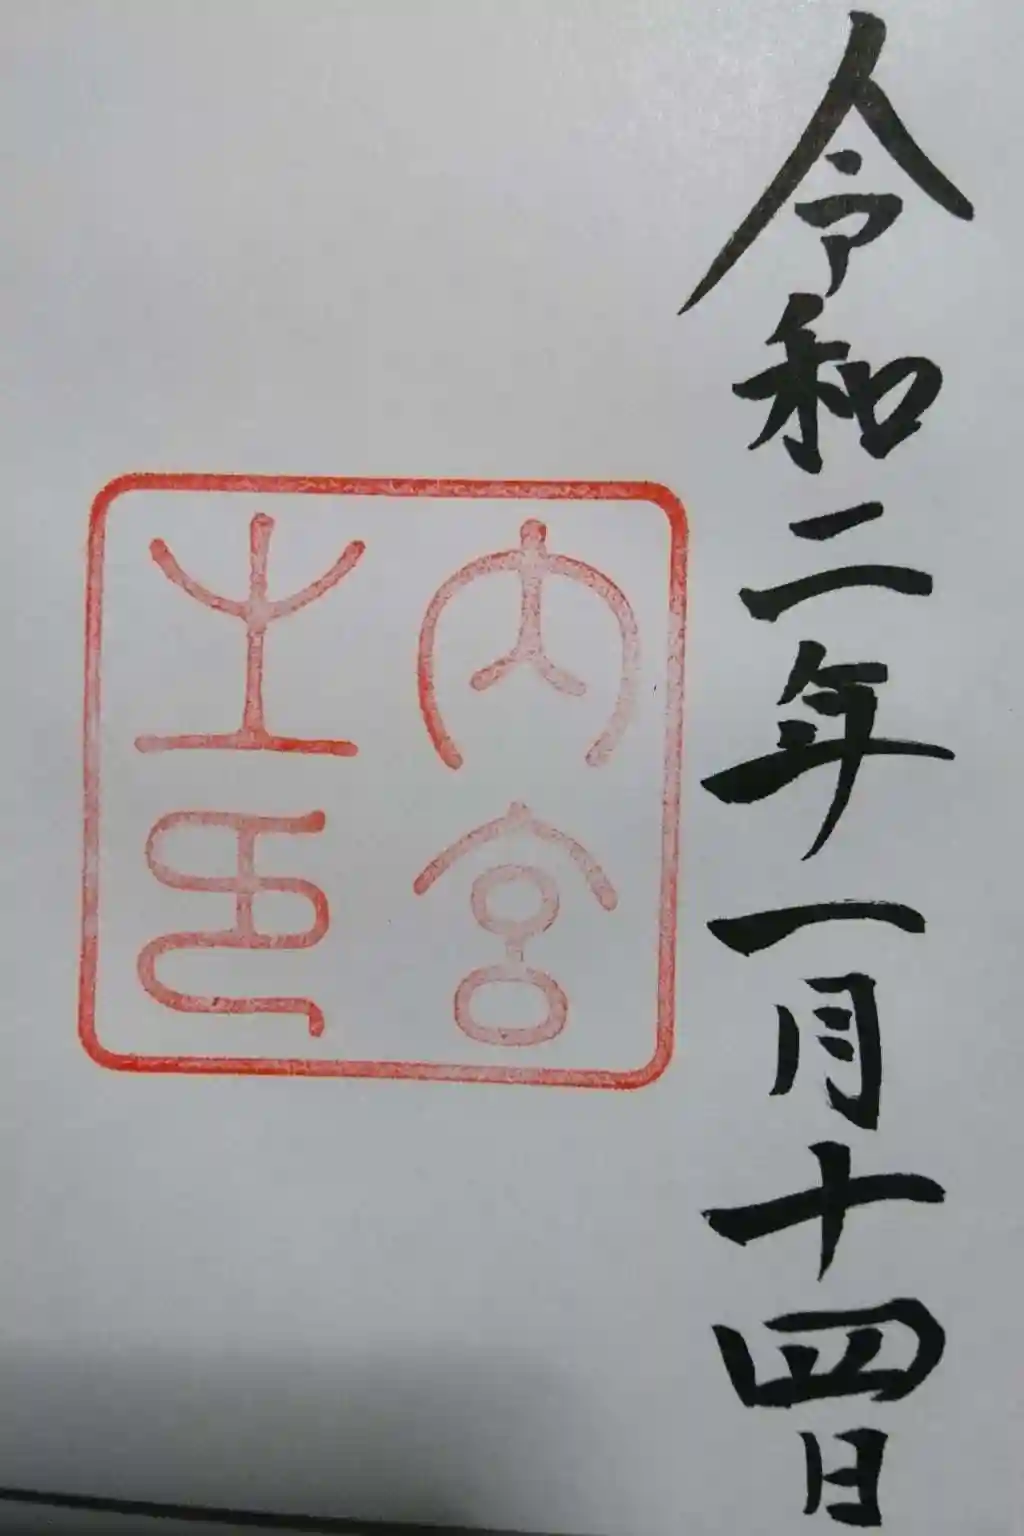 令和二年一月十四日
内宮
之印